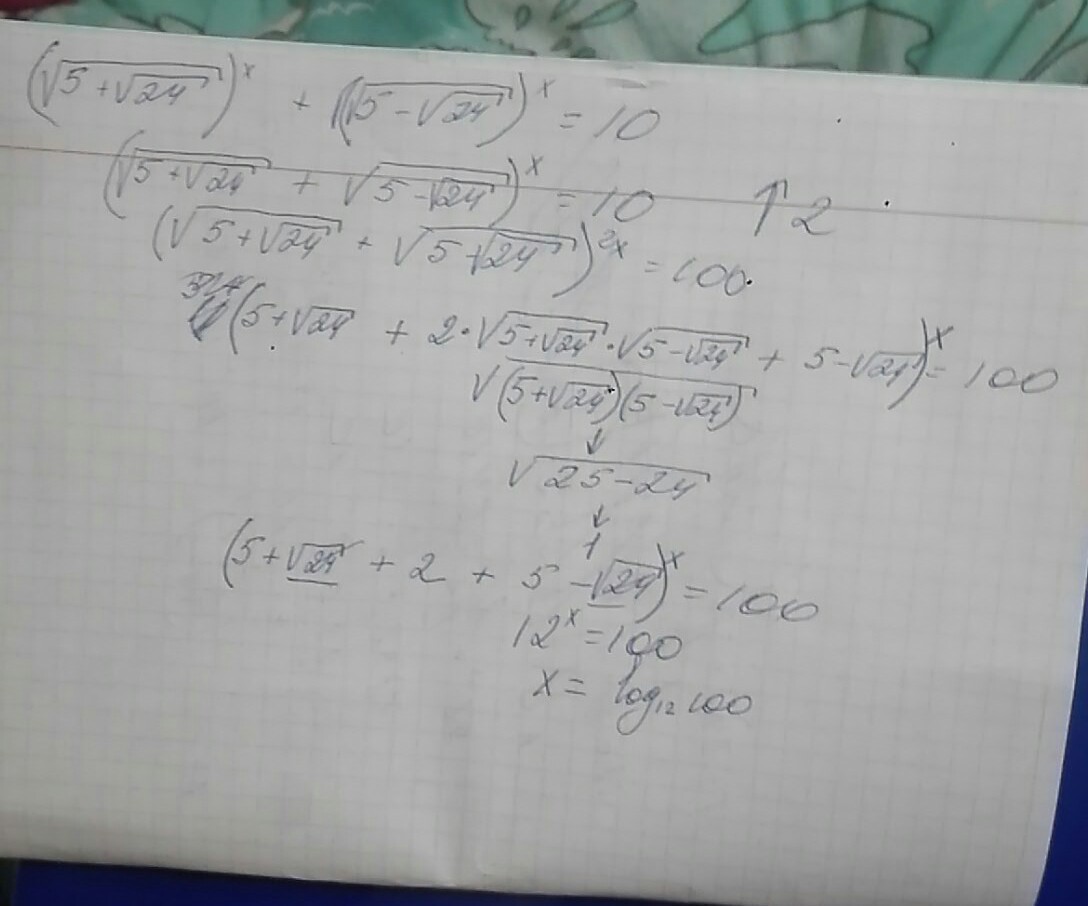 (√(5+√24))^x + (√(5-√24))^x = 10
(√(5+√24) + √(5-√24))^x = 10 ↑2
(√(5+√24) + √(5-√24))^2x = 100
(5+√24 + 2·√(5+√24)·√(5-√24) + 5-√24)^x = 100
√((5+√24)(5-√24))
↓
√(25-24)
↓
1
(5+√24 + 2 + 5 -√24)^x = 100
12^x = 100
x = log₁₂ 100